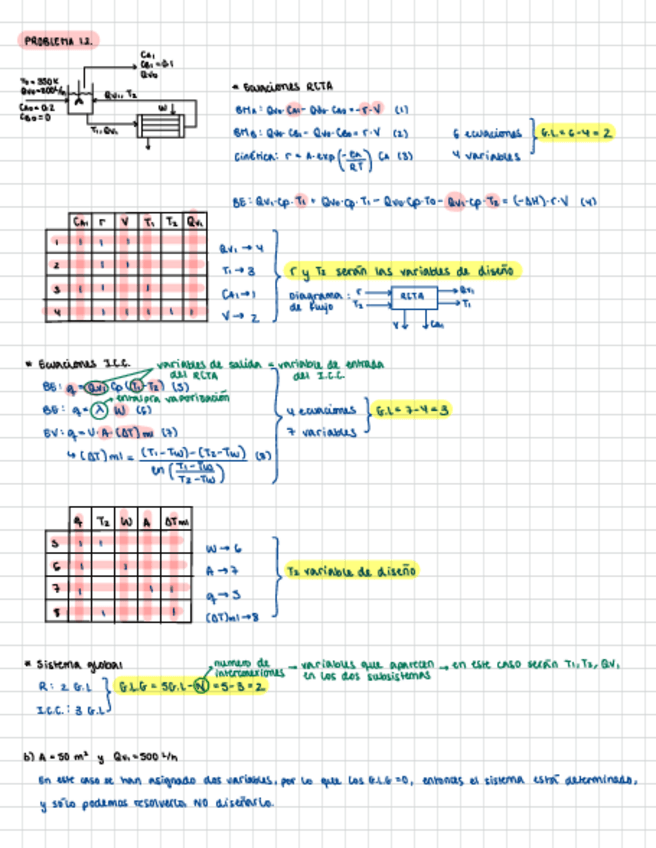 PROBLEMA 1.2.
CA1
CB1 = 0.1
Qv0
T0 = 350K
Qv0=200L/h
CA0=0.2
CB0=0
Qv1, T2
W
T1, Qv1
* Ecuaciones RCTA
BMA: Qv0·CA1 - Qv0·CA0 = -r·V (1)
BMB: Qv0·CB1 - Qv0·CB0 = r·V (2)
Cinética: r = A·exp(-EA/RT) CA (3)
6 ecuaciones
4 variables
G.L = 6-4 = 2
BE: Qv1·Cp·T1 + Qv0·Cp·T1 - Qv0·Cp·T0 - Qv1·Cp·T2 = (-ΔH)·r·V (4)
CA1 r V T1 T2 Qv1
1 1 1 1
2 1 1
3 1 1 1
4 1 1 1 1 1
Qv1 → 4
T1 → 3
CA1 → 1
V → 2
r y T2 serán las variables de diseño
Diagrama de flujo:
r
T2
RCTA
Qv1
T1
V
CA1
* Ecuaciones I.C.C.
variables de salida = variable de entrada
del RCTA del I.C.C.
BE: q = Qv1 Cp (T1-T2) (5)
entalpia vaporización
BE: q = λ W (6)
EV: q = U·A·(ΔT)ml (7)
↳ (ΔT)ml = (T1-TW)-(T2-TW) / ln(T1-TW / T2-TW) (8)
4 ecuaciones
7 variables
G.L = 7-4 = 3
q T2 W A ΔTml
5 1 1
6 1 1
7 1 1 1
8 1 1
W → 6
A → 7
q → 5
(ΔT)ml → 8
T2 variable de diseño
* Sistema global
numero de interconexiones → variables que aparecen en los dos subsistemas → en este caso serán T1, T2, Qv1
R: 2 G.L
I.C.C.: 3 G.L
G.L.G = 5G.L - N = 5-3 = 2
b) A = 50 m² y Qv1 = 500 L/h
En este caso se han asignado dos variables, por lo que los G.L.G = 0, entonces el sistema está determinado,
y sólo podemos resolverlo NO diseñarlo.